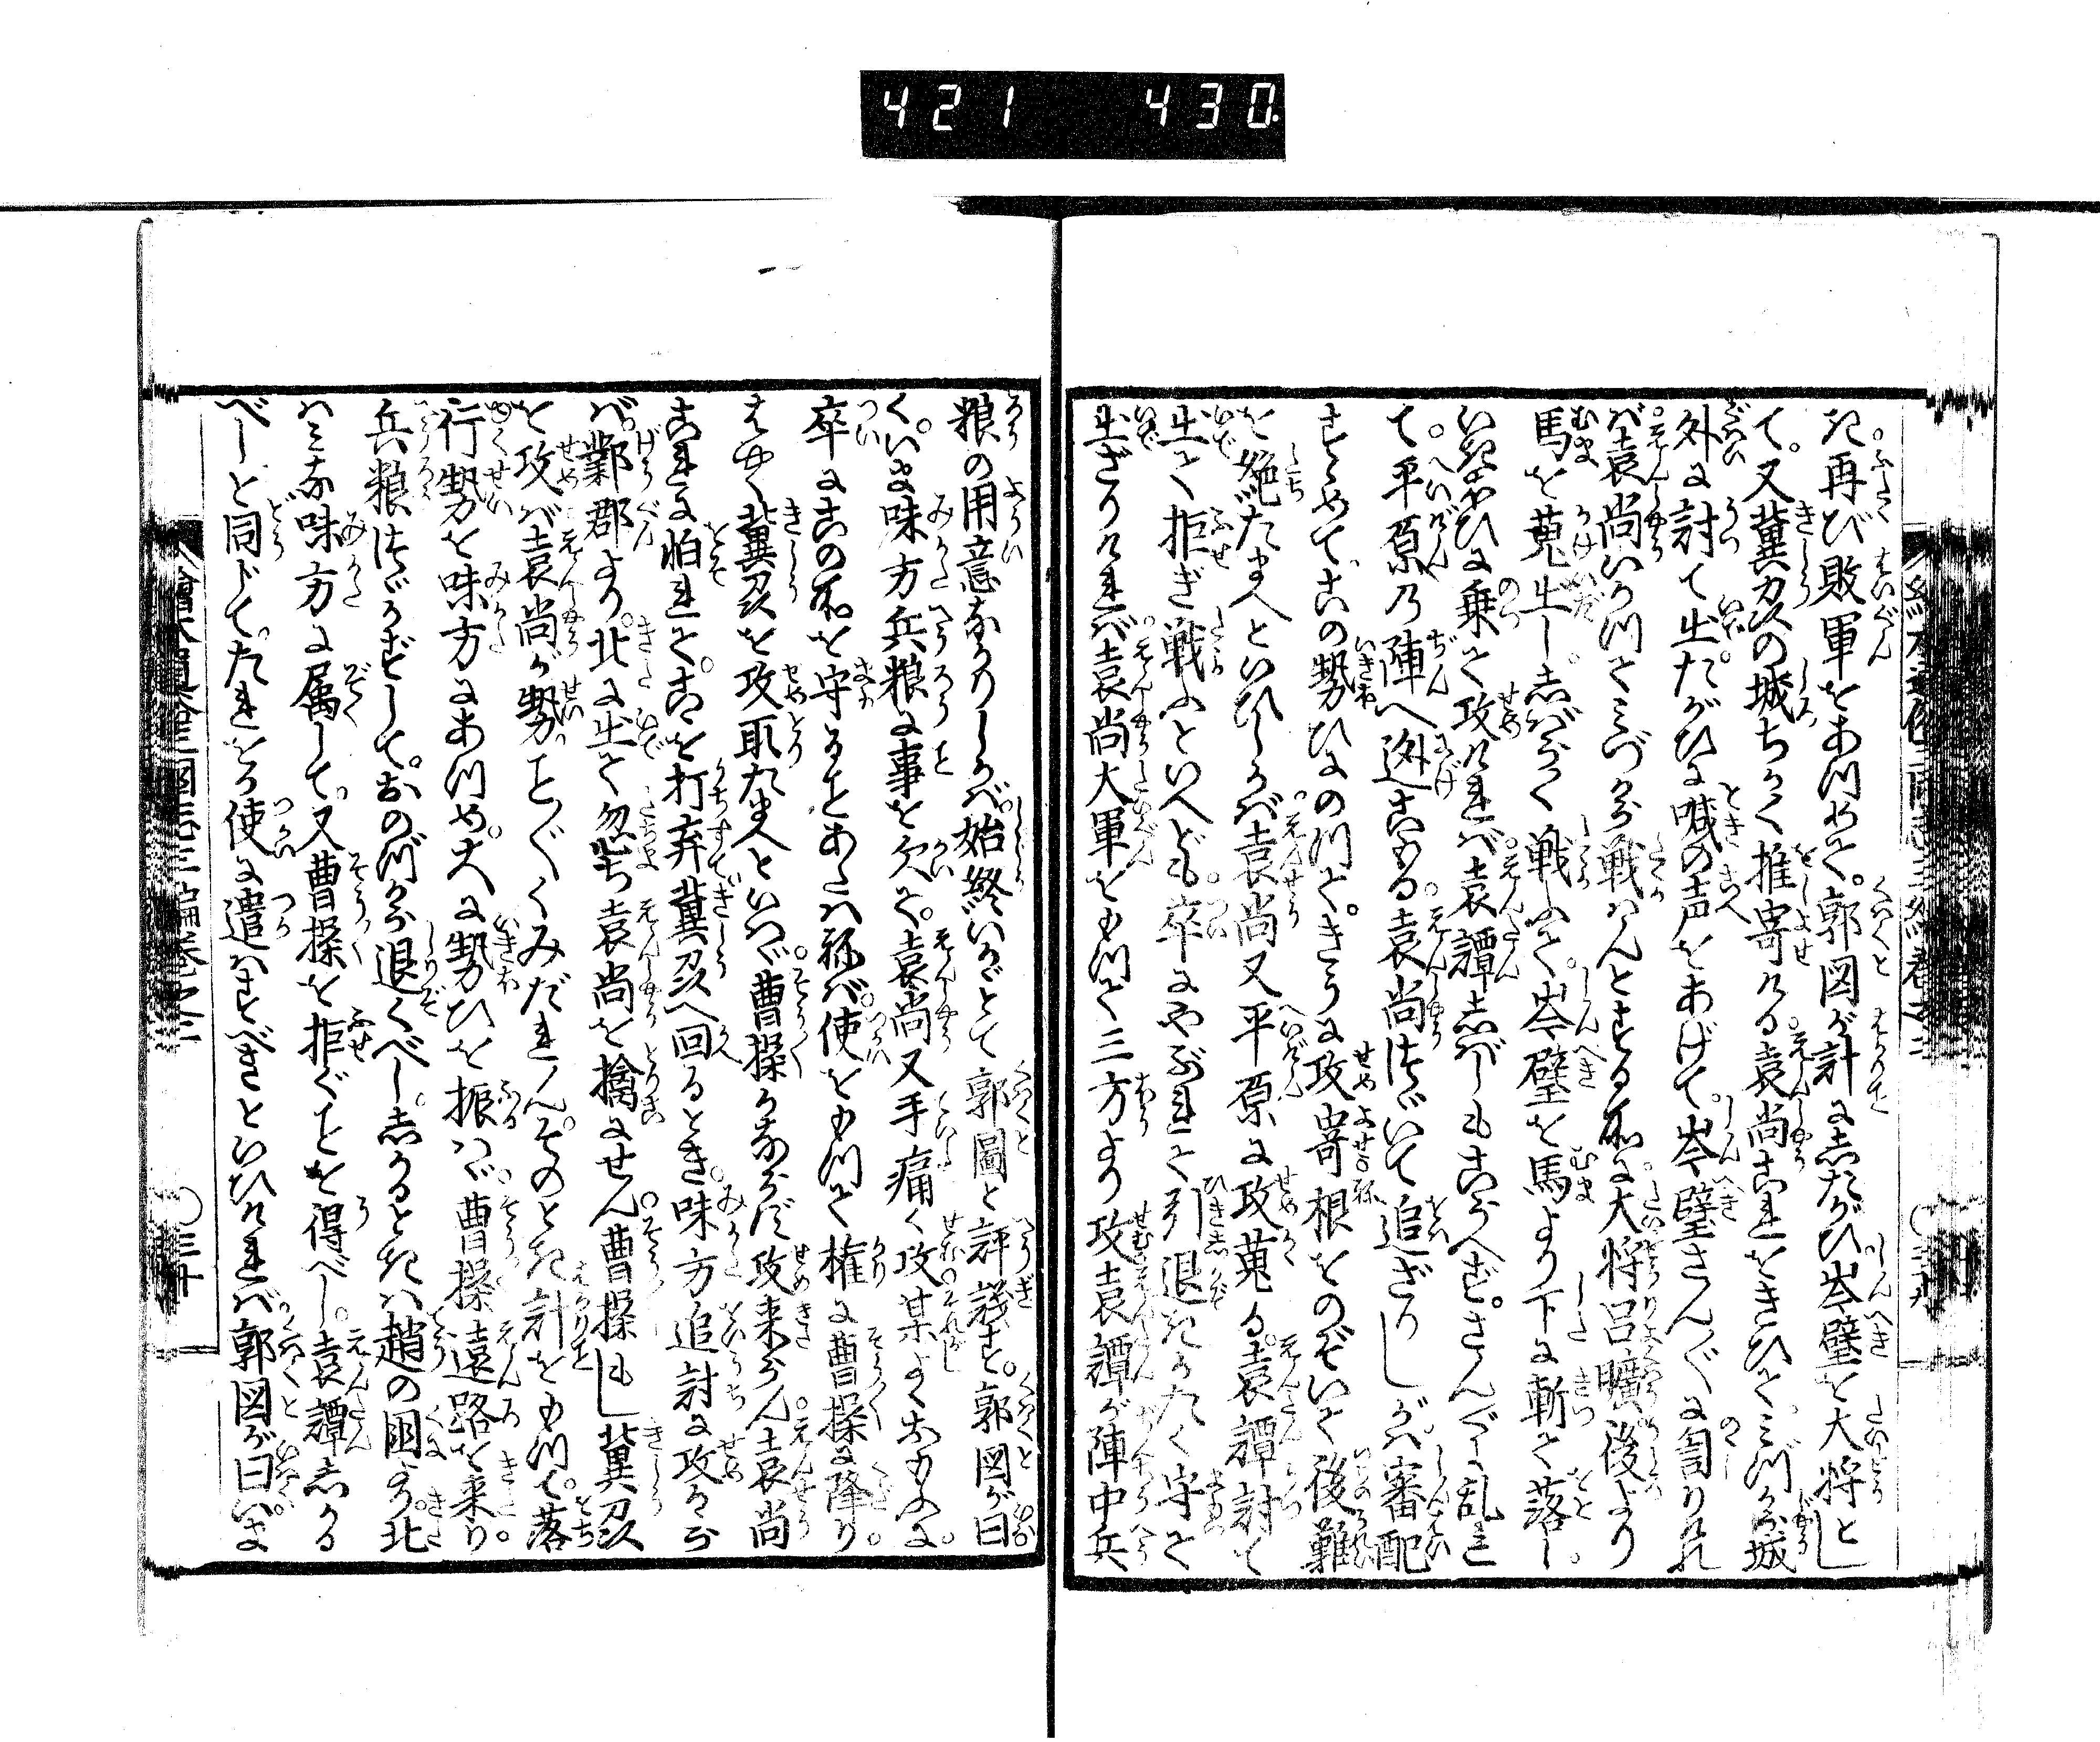 421 430
き再び敗軍をあつめて。郭図が計にしたがひ岑璧を大将とし
て。又冀州の城ちかく推寄ける袁尚これをきひてみづから城
外に討て出。たがひに喊の声をあげて。岑璧さんざんに罵りけれ
ば袁尚いかつてみづから戦はんとする所に大将呂曠後より
馬を蒐出ししばらく戦ふて。岑璧を馬より下に斬て落し。
いきほひに乗て攻ければ袁譚しばしもこらへず。さんざんに乱れ
て。平原の陣へ逃こもる。袁尚つゞいて追ざりしが審配
すゝめて。此の勢ひにのつて。きうに攻寄根をのぞいて後難
を絶たまへといひしかば袁尚又平原に攻蒐る。袁譚討て
出て拒ぎ戦ふといへども卒にやぶれて引退きかたく守て
出ざりければ袁尚大軍をもつて三方より攻袁譚が陣中兵
粮の用意なかりしかば始終いかゞとて郭圖と評議す。郭図が曰
くいま味方兵粮に事を欠て。袁尚又手痛く攻某よくおもふに
卒に此の所を守ることあたはねば。使をもつて権に曹操に降り
はやく冀州を攻取たまへといはゞ曹操かならず攻来らん袁尚
これに怕れて。こゝを打弃冀州へ回るとき。味方追討に攻るなら
ば。鄴郡より。北に出て忽ち袁尚を擒にせん曹操もし冀州
を攻ば袁尚が勢ことごとくみだれん。そのとき計をもつて。落
行勢を味方にあつめ。大に勢ひを振はゞ曹操遠路を来り
兵粮つゞかずして。おのづから退くべし。しかるときは趙の国より。北
はみな味方に属して。又曹操を拒ぐことを得べし。袁譚しかる
べしと同じて。たれをか使に遣はすべきといひければ郭図が曰いま
三十